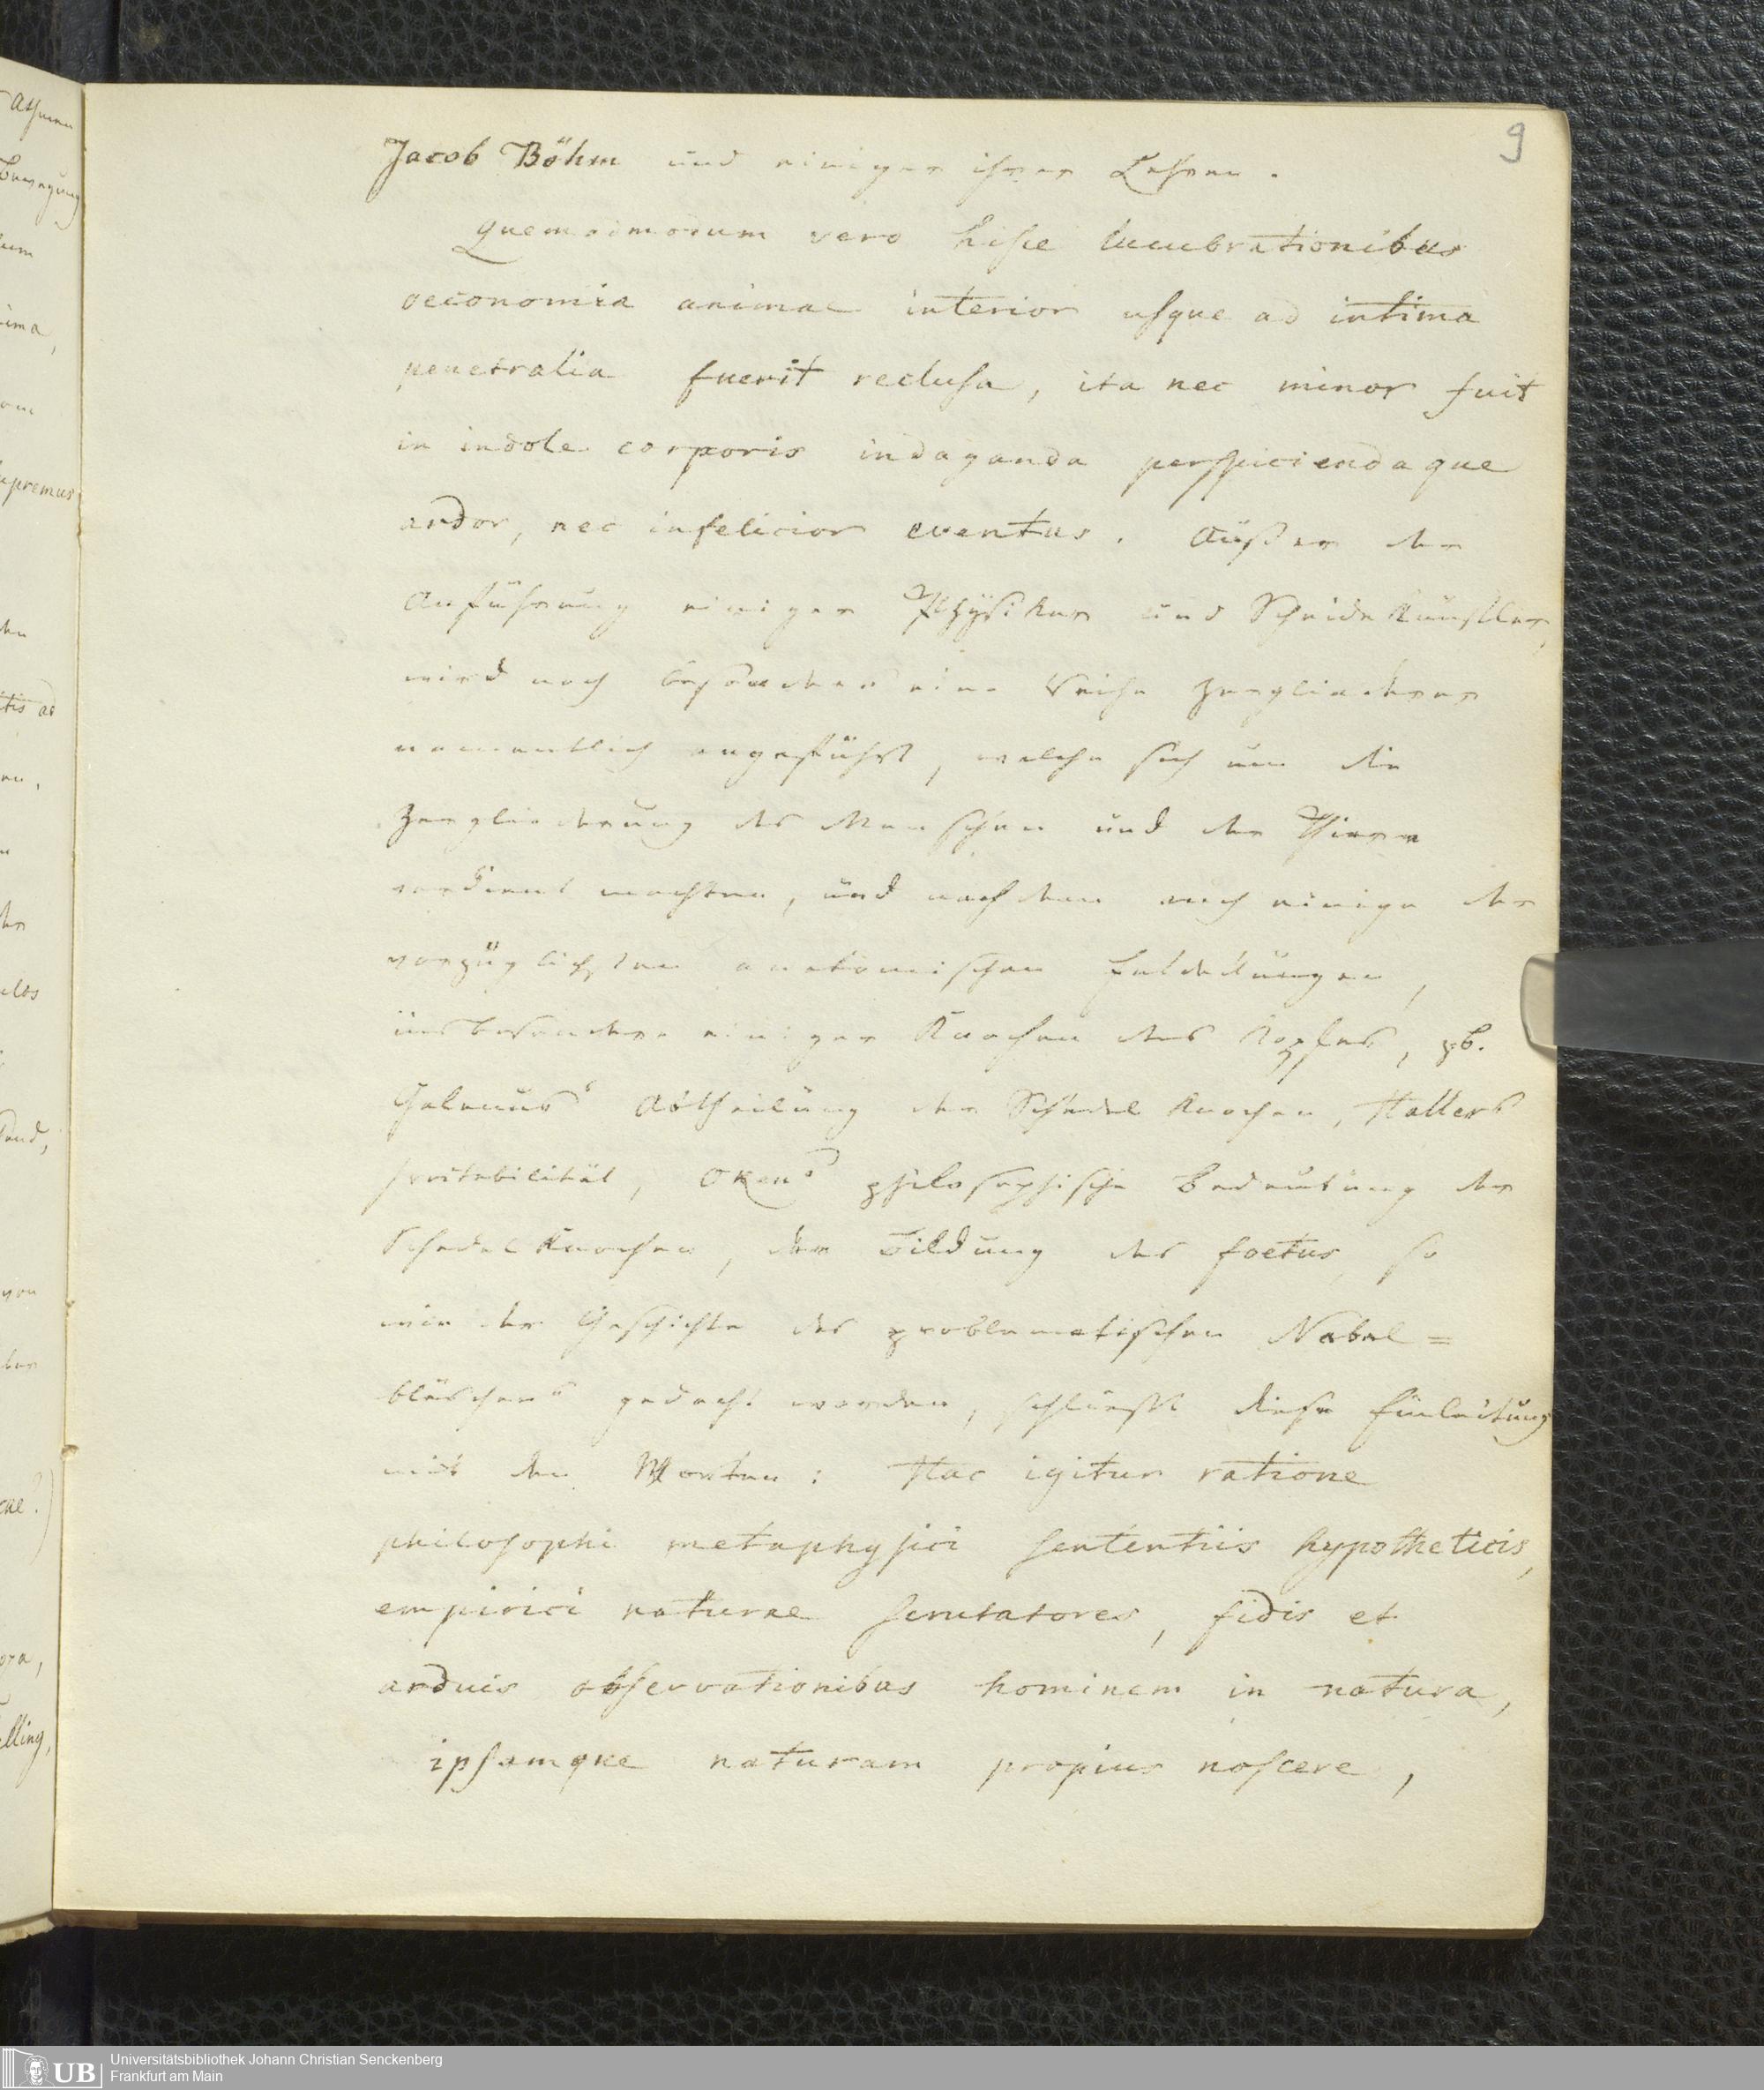 9
Jacob Böhm und einiger ihrer Lehren.
Quemadmodum vero hisce lucubrationibus
oeconomia animae interior usque ad intima
penetralia fuerit reclusa, ita nec minor fuit
in indole corporis indaganda perspiciendaque
ardor, nec infelicior eventus. Außer der
Anführung einiger Physiker und Scheidekünstler,
wird noch besonders eine Reihe Zergliederer
namentlich angeführt, welche sich um die
Zergliederung des Menschen und der Thiere
verdient machten, und nachdem auch einige der
vorzüglichsten anatomischen Entdeckungen,
insbesondere einiger Knochen des Kopfes, zB.
Galenus' Abtheilung der Schedel Knochen, Hallers
Irritabilität, Oken's philosophische Bedeutung der
Schedel Knochen, der Bildung des foetus, so
wie der Geschichte des problematischen Nabel=
bläschens gedacht worden, schliesst diese Einleitung
mit den Worten: Hac igitur ratione
philosophi metaphysici sententiis hypotheticis,
empirici naturae scrutatores, fidis et
arduis observationibus hominem in natura,
ipsamque naturam propius noscere,
Athmen
Bewegung
supremus
itis ad
von
elling,
UB
Universitätsbibliothek Johann Christian Senckenberg
Frankfurt am Main